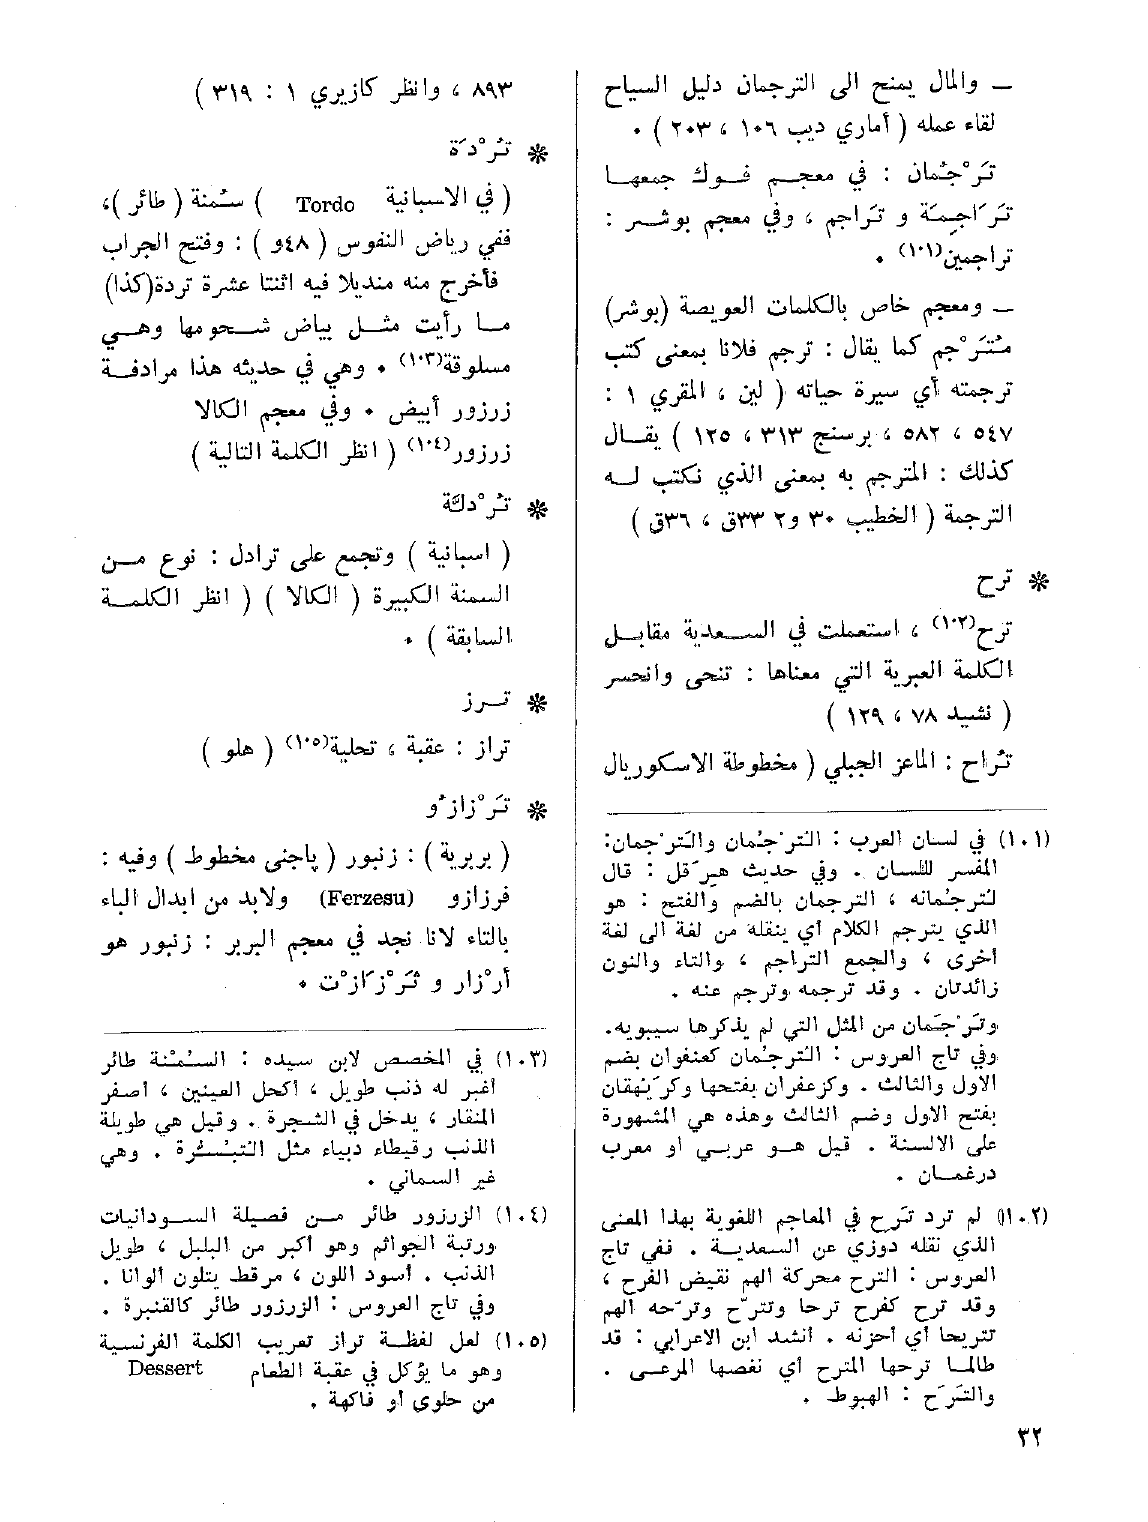 — والمال يمنح الى الترجمان دليل السياح
لقاء عمله ( أماري ديب ١٠٦ ، ٢٠٣ ) ٠
تَرْجُمان : في معجم فوك جمعها
تَرَاجِمَة و تَراجم ، وفي معجم بوشر :
تراجمين(١٠١) ٠
— ومعجم خاص بالكلمات العويصة (بوشر)
مُتَرْجم كما يقال : ترجم فلانا بمعنى كتب
ترجمته أي سيرة حياته ( لين ، المقري ١ :
٥٤٧ ، ٥٨٢ ، برسنج ٣١٣ ، ١٢٥ ) يقال
كذلك : المترجم به بمعنى الذي نكتب له
الترجمة ( الخطيب ٣٠ و٢ ٣٣ق ، ٣٦ق )
* ترح
ترح(١٠٢) ، استعملت في السعدية مقابل
الكلمة العبرية التي معناها : تنحى وانحسر
( نشيد ٧٨ ، ١٢٩ )
تُراح : الماعز الجبلي ( مخطوطة الاسكوريال
(١٠١) في لسان العرب : التُرْجُمان والتَرْجمان:
المفسر للسان . وفي حديث هِرَقل : قال
لتُرجُمانه ، الترجمان بالضم والفتح : هو
الذي يترجم الكلام أي ينقله من لغة الى لغة
أخرى ، والجمع التراجم ، والتاء والنون
زائدتان . وقد ترجمه وترجم عنه .
وتَرْجَمان من المثل التي لم يذكرها سيبويه.
وفي تاج العروس : الترجُمان كعنفوان بضم
الاول والثالث . وكزعفران بفتحها وكرَيْهقان
بفتح الاول وضم الثالث وهذه هي المشهورة
على الالسنة . قيل هو عربي أو معرب
درغمان .
(١٠٢) لم ترد تَرَح في المعاجم اللغوية بهذا المعنى
الذي نقله دوزي عن السعدية . ففي تاج
العروس : الترح محركة الهم نقيض الفرح ،
وقد ترح كفرح ترحا وتترّح وترّحه الهم
تتريحا أي أحزنه . أنشد ابن الاعرابي : قد
طالما ترحها المترح أي نغصها المرعى .
والتَرَح : الهبوط .
٨٩٣ ، وانظر كازيري ١ : ٣١٩ )
* تُرْدَة
( في الاسبانية Tordo ) سُمنة ( طائر )،
ففي رياض النفوس ( ٤٨و ) : وفتح الجراب
فأخرج منه منديلا فيه اثنتا عشرة تردة(كذا)
ما رأيت مثل بياض شحومها وهي
مسلوقة(١٠٣) ٠ وهي في حديثه هذا مرادفة
زرزور أبيض ٠ وفي معجم الكالا
زرزور(١٠٤) ( انظر الكلمة التالية )
* تُرْدلَّة
( اسبانية ) وتجمع على ترادل : نوع من
السمنة الكبيرة ( الكالا ) ( انظر الكلمة
السابقة ) ٠
* ترز
تراز : عقبة ، تحلية(١٠٥) ( هلو )
* تَرْزازُو
( بربرية ) : زنبور ( پاجنى مخطوط ) وفيه :
فرزازو (Ferzesu) ولابد من ابدال الباء
بالتاء لانا نجد في معجم البربر : زنبور هو
أرْزار و ثَرْزَازْت ٠
(١٠٣) في المخصص لابن سيده : السُمْنة طائر
أغبر له ذنب طويل ، أكحل العينين ، أصفر
المنقار ، يدخل في الشجرة . وقيل هي طويلة
الذنب رقيطاء دبياء مثل التُبُشِّرة . وهي
غير السماني .
(١٠٤) الزرزور طائر من فصيلة السودانيات
ورتبة الجواثم وهو أكبر من البلبل ، طويل
الذنب . أسود اللون ، مرقط يتلون ألوانا .
وفي تاج العروس : الزرزور طائر كالقنبرة .
(١٠٥) لعل لفظة تراز تعريب الكلمة الفرنسية
Dessert وهو ما يؤكل في عقبة الطعام
من حلوى أو فاكهة .
٣٢